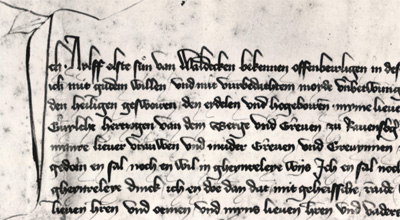 Ich Aylff elste sún van Waldecken bekennen offenberligen in des
ich mit gúden willen und mit vurbedachtem moide unbetwúng
den heiligen geswoiren den edelen und hogeboiren myme lieuen
hertzogen van dem Berge und Greuen zo Rauensberg
mynre lieuer vrauwen und múder Greuen und Greuynnen
gedain en sal noch en wil in gheynreleye wijs Ich en sal noch
gheynreleye dinck ich en doe dan dat mit geheissche raide
lieuen hren und oemen und myns lieuen hren und vaders